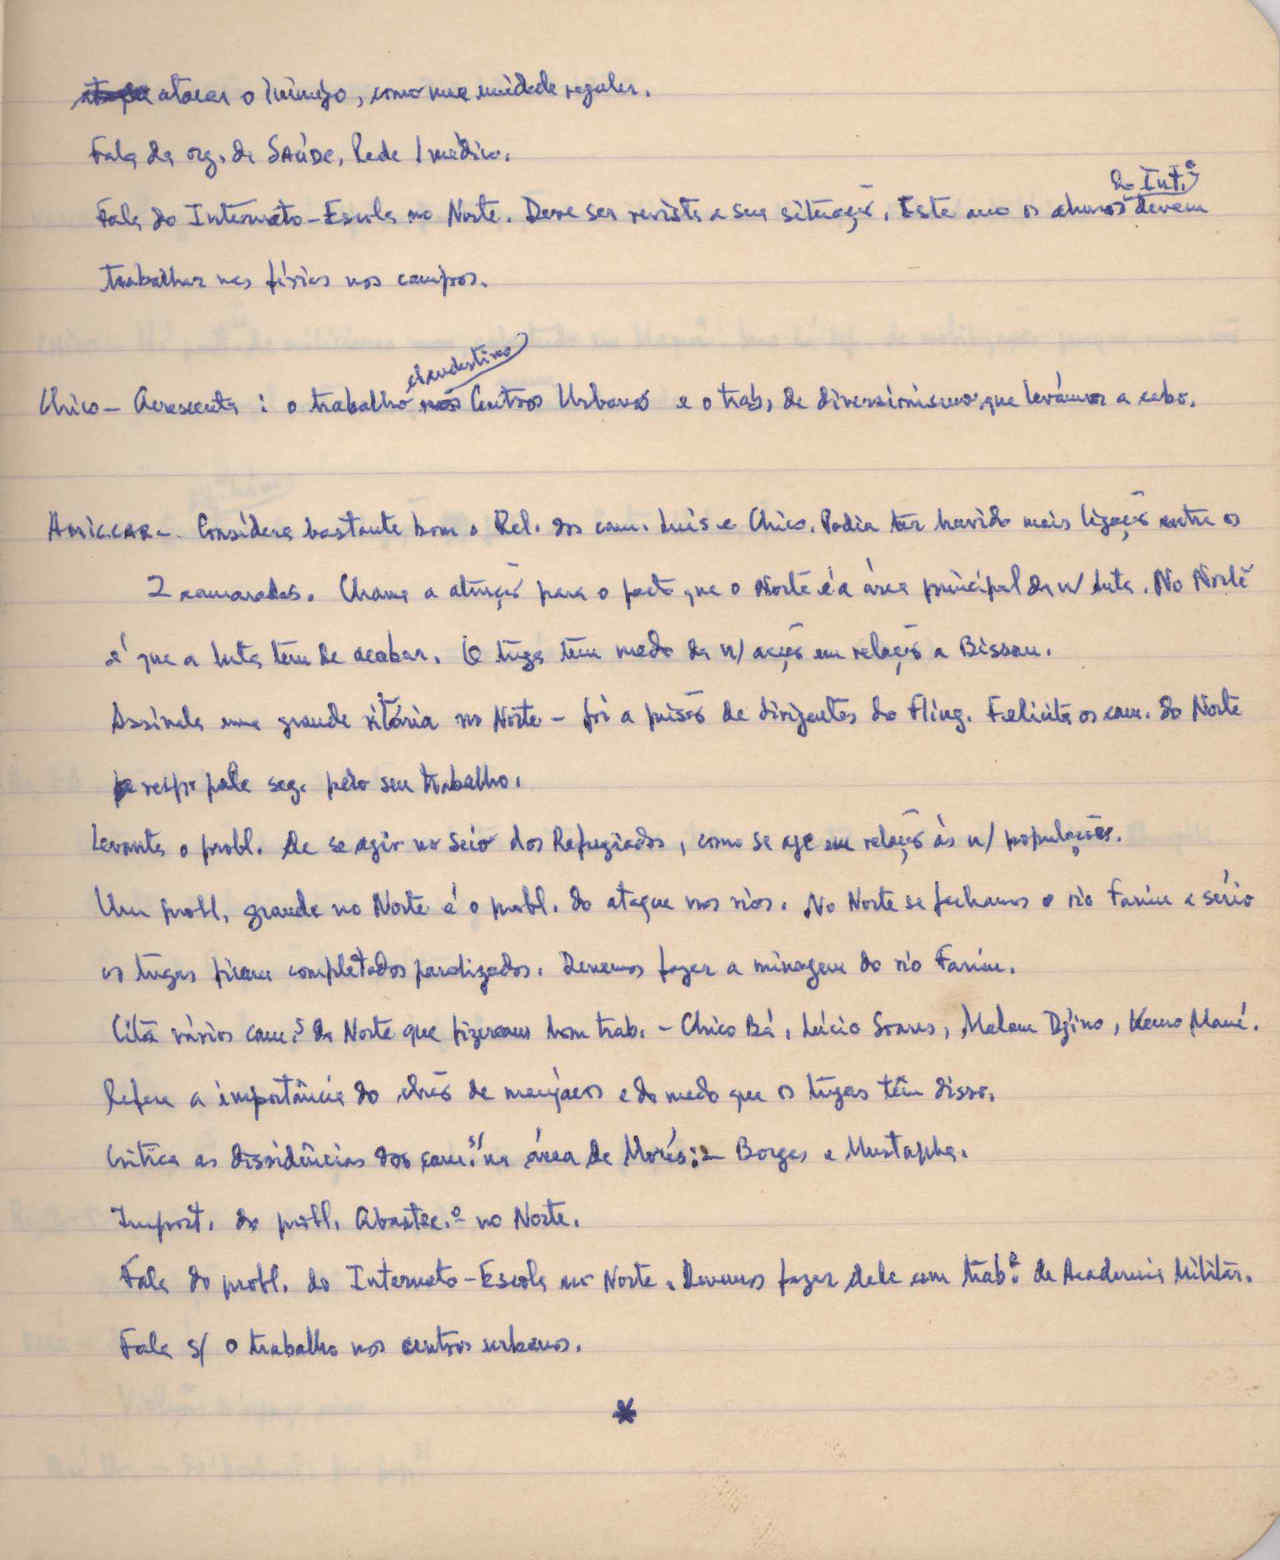 atacar o inimigo, como uma unidade regular.
Fala da org. da SAÚDE, Rede / médica.
Fala do Internato-Escola no Norte. Deve ser revista a sua situação. Este ano os alunos do Int.º devem
trabalhar nas férias nos campos.
Chico - Acrescenta : o trabalho clandestino nos Centros Urbanos e o trab. de diversionismo que levámos a cabo.
AMILCAR - Considera bastante bom o Rel. dos cam. Luís e Chico. Podia ter havido mais ligação entre os
2 camaradas. Chama a atenção para o facto que o Norte é a área principal da n/ luta. No Norte
é que a luta tem de acabar. O tuga tem medo da n/ acção em relação a Bissau.
Assinala uma grande vitória no Norte - foi a prisão de dirigentes do Fling. Felicita os cam. do Norte
resp. pela seg. pelo seu trabalho.
Levanta o probl. de se agir no seio dos Refugiados, como se age em relação às n/ populações.
Um probl. grande no Norte é o probl. do ataque nos rios. No Norte se fechamos o rio Farim a sério
os tugas ficam completados paralizados. Devemos fazer a minagem do rio Farim.
Cita vários cam.s do Norte que fizeram bom trab. - Chico Bá, Lúcio Soares, Malam Djino, Kemo Mané.
Refere a importância do chão de manjacos e do medo que os tugas têm disso.
Critica as dissidências dos cam.s na área de Morés: - Borges e Mustapha.
Import. do probl. Abastec.º no Norte.
Fala do probl. do Internato-Escola no Norte. Devemos fazer dele um trab.º de Academia Militar.
Fala s/ o trabalho nos centros urbanos.
*